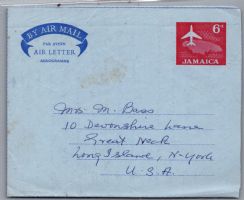 BY AIR MAIL
PAR AVION
AIR LETTER
AEROGRAMME
6d
JAMAICA
Mrs. M. Bass
10 Devonshire Lane
Great Neck
Long Island, N-York
U.S.A.